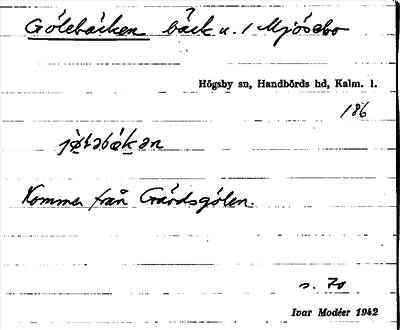 Gölebäcken bäck u. 1 Mjösebo
Högsby sn, Handbörds hd, Kalm. l.
186
Kommer från Gårdsgölen.
s. 70
Ivar Modéer 1942